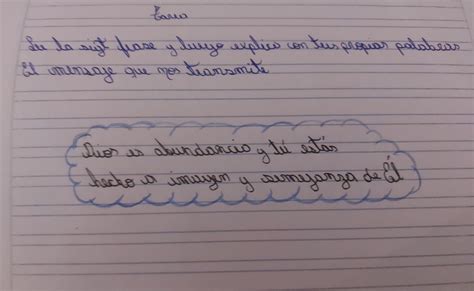 Tarea
Lee la sigt frase y luego explica con tus propias palabras
El mensaje que nos transmite
Dios es abundancia y tú estás
hecho a imagen y semejanza de Él